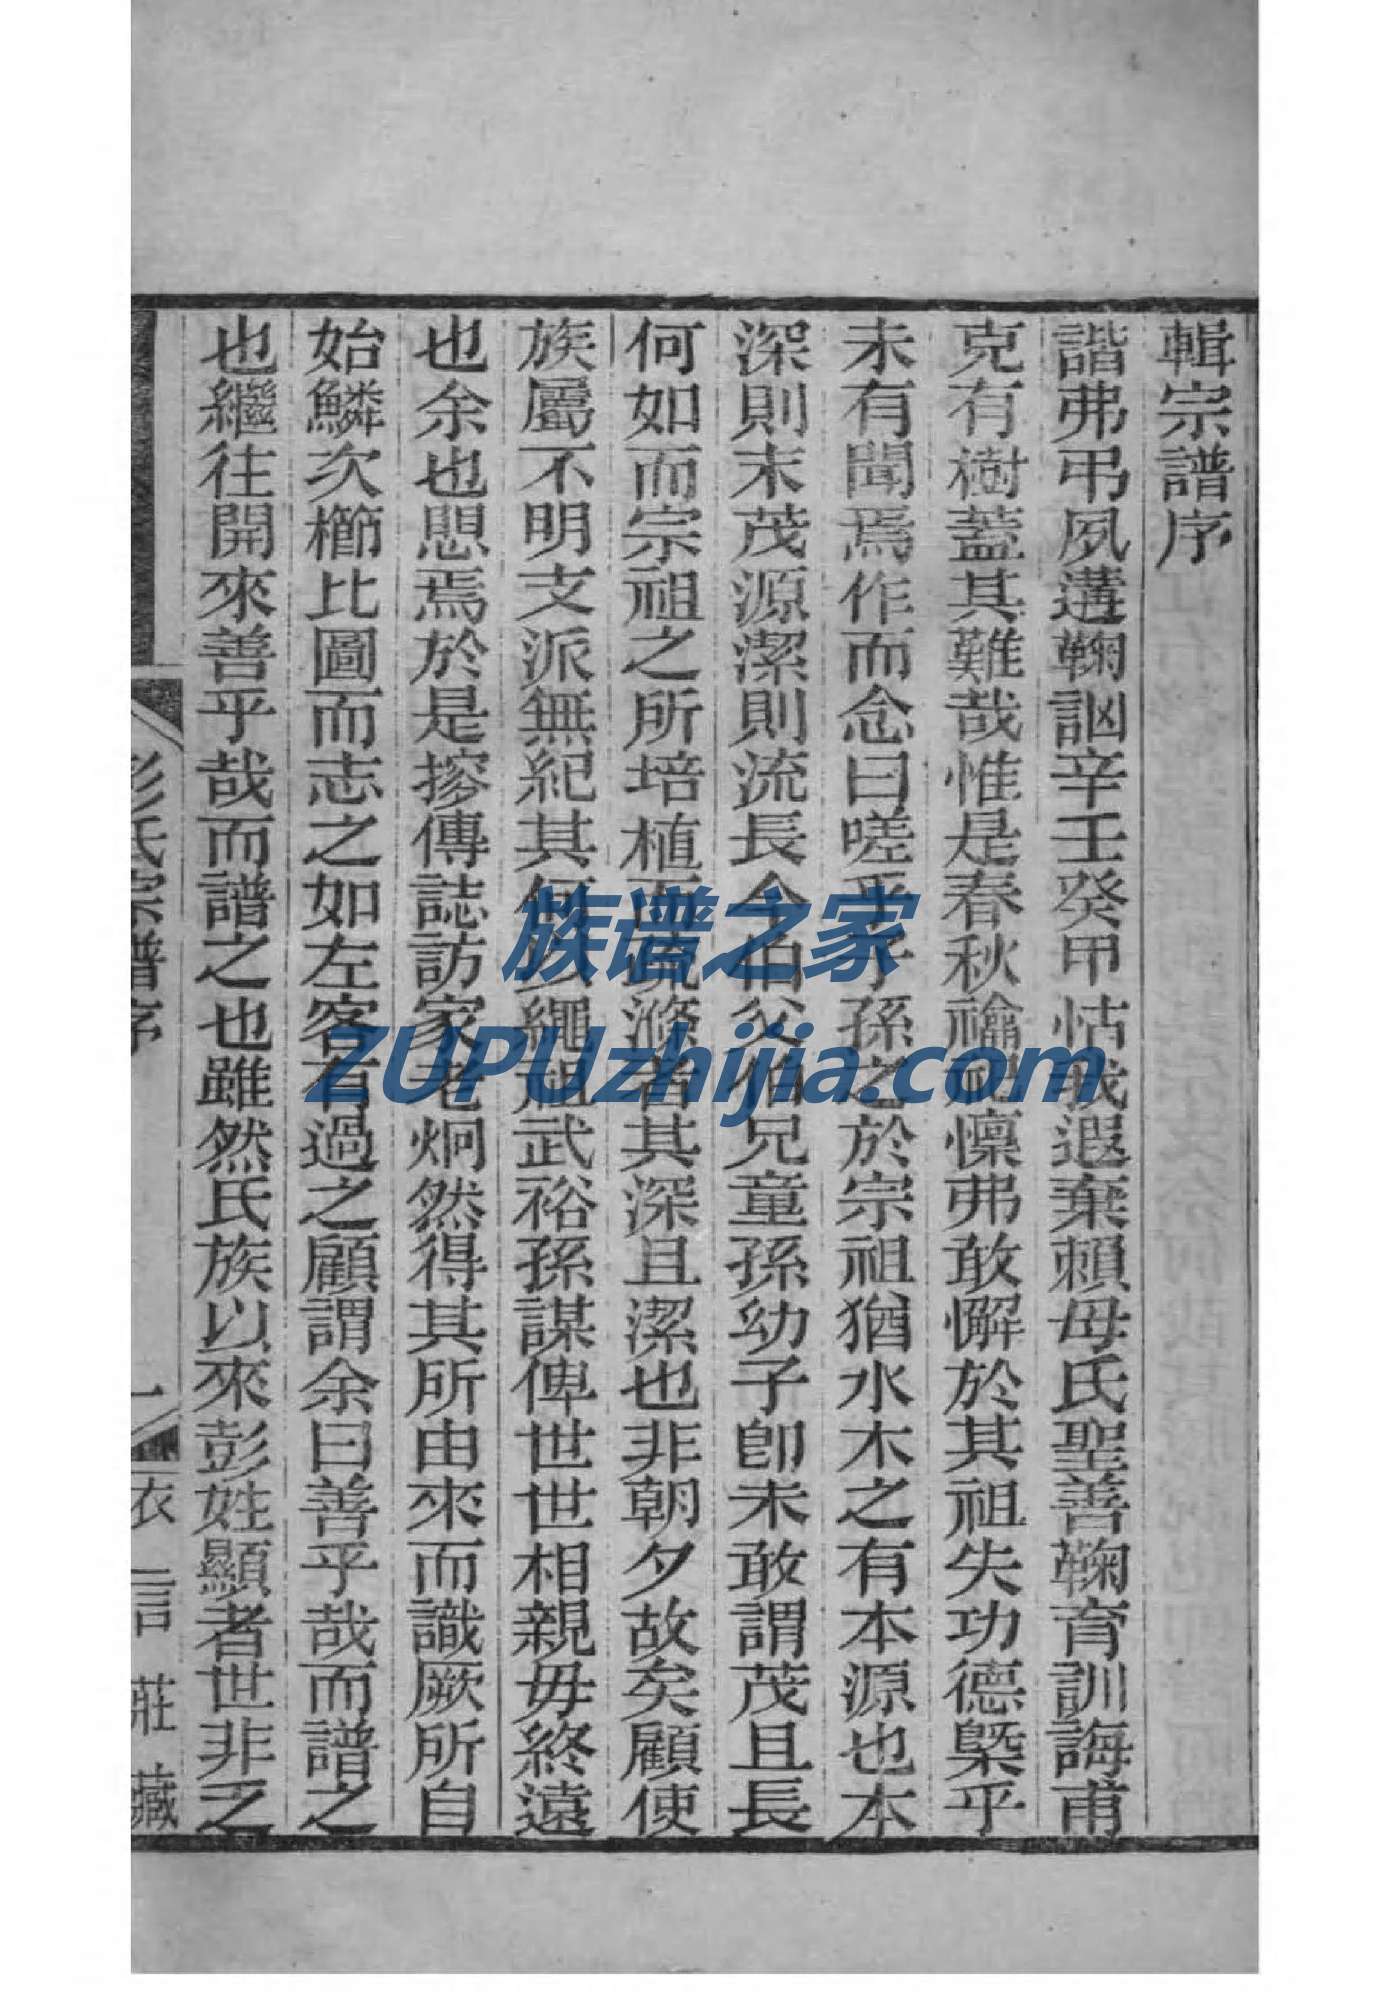 輯宗譜序
諧弗弔夙遘鞠訩辛壬癸甲怙我遐棄賴母氏聖善鞠育訓誨甫
克有樹蓋其難哉惟是春秋禴祀懍弗敢懈於其祖失功德槩乎
未有聞焉作而念曰嗟乎子孫之於宗祖猶水木之有本源也本
深則末茂源潔則流長今伯父伯兄童孫幼子卽未敢謂茂且長
何如而宗祖之所培植而疏滌者其深且潔也非朝夕故矣顧使
族屬不明支派無紀其何以繩祖武裕孫謀俾世世相親毋終遠
也余也愳焉於是摉傳誌訪家老炯然得其所由來而識厥所自
始鱗次櫛比圖而志之如左客有過之顧謂余曰善乎哉而譜之
也繼往開來善乎哉而譜之也雖然氏族以來彭姓顯者世非乏
彭氏宗譜序
一
衣言莊藏
族谱之家
ZUPUzhijia.com